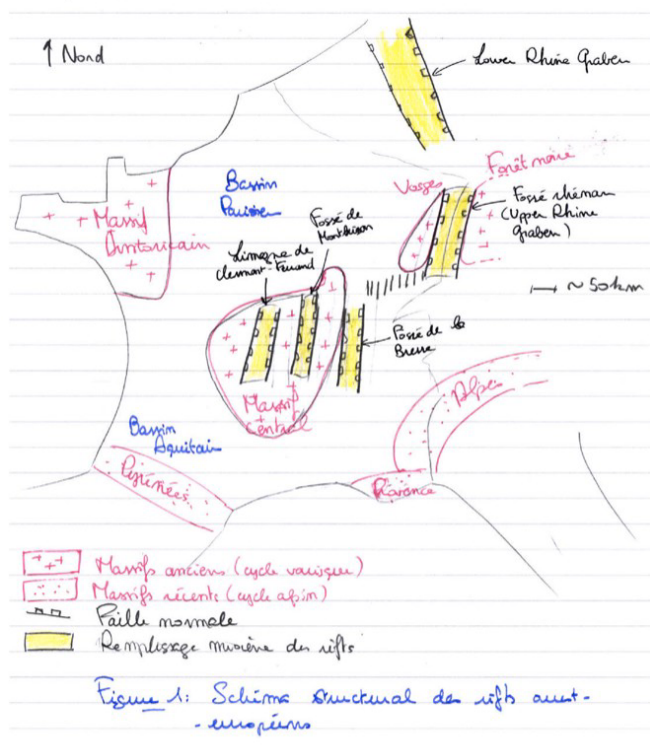 ↑ Nord
Lower Rhine Graben
Forêt noire
Vosges
Fossé rhénan
(Upper Rhine
Graben)
Bassin
Parisien
Massif
Armoricain
Fossé de
Montbrison
Limagne de
Clermont-Ferrand
~ 50 km
Fossé de la
Bresse
Massif
Central
Alpes
Bassin
Aquitain
Pyrénées
Provence
Massifs anciens (cycle varisque)
Massifs récents (cycle alpin)
Faille normale
Remplissage miocène des rifts
Figure 1: Schéma structural des rifts ouest-
-européens